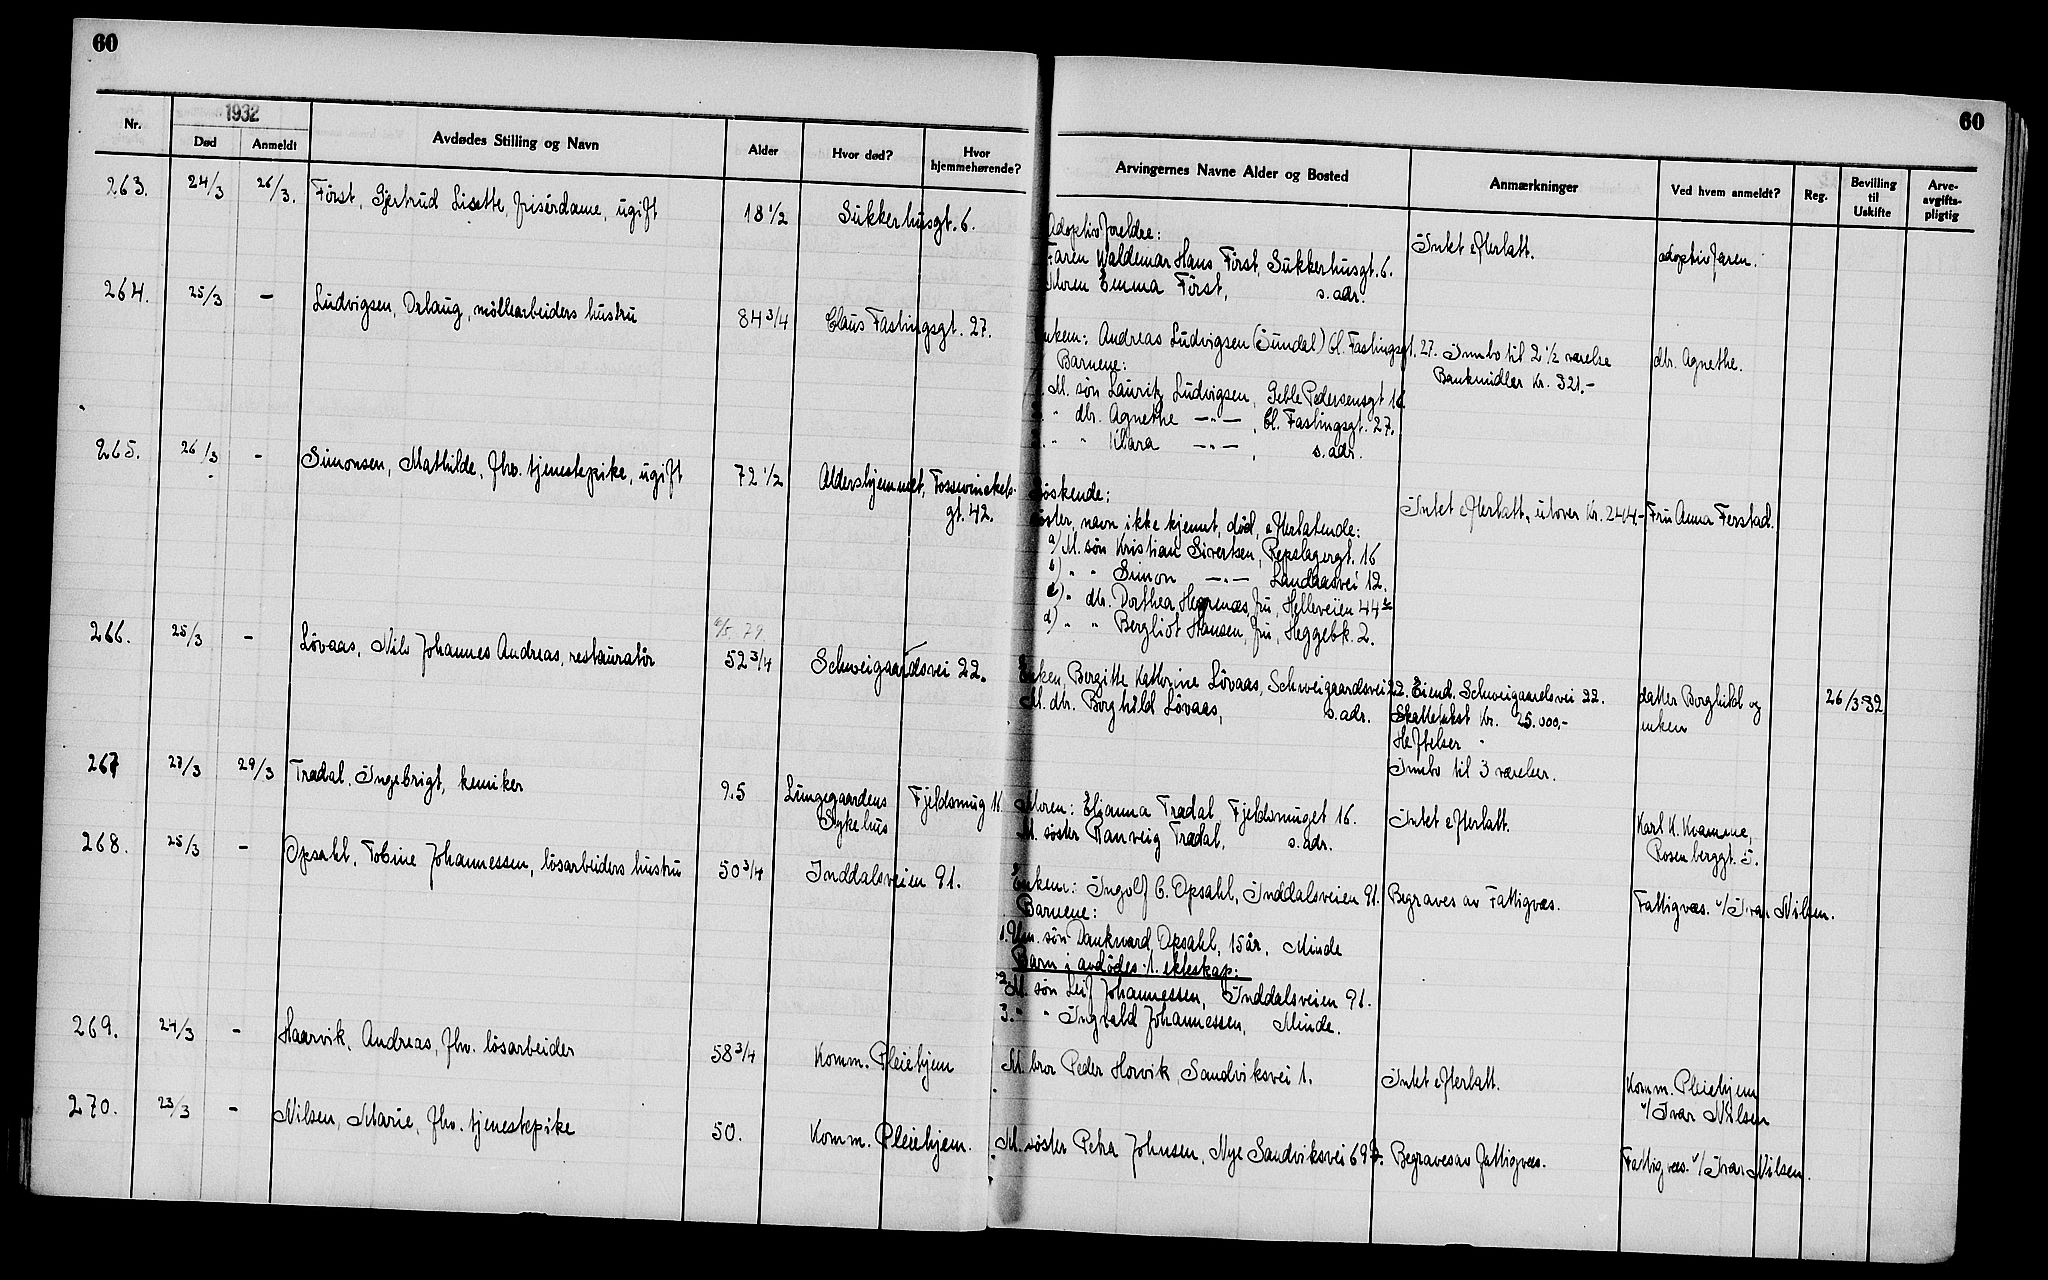 60
60
1932
Nr.
Død
Anmeldt
Avdødes Stilling og Navn
Alder
Hvor død?
Hvor hjemmehørende?
Arvingernes Navne Alder og Bosted
Anmærkninger
Ved hvem anmeldt?
Reg.
Bevilling til Uskifte
Arve-avgifts-pligtig
263. 24/3 26/3. Först, Gjertrud Lisette, frisérdame, ugift 18 1/2 Sukkerhusgt. 6.
Adoptivforeldre: Intet efterlatt. adoptivfaren.
Faren Waldemar Hans Först, Sukkerhusgt. 6.
Moren Emma Först, s. adr.
264. 25/3 - Ludvigsen, Orlaug, möllearbeiders hustru 84 3/4 Claus Fastingsgt. 27.
Enkem: Andreas Ludvigsen (Sundal) Cl. Fastingsgt. 27. Innbo til 2 1/2 værelse dtr. Agnethe.
Barnene: Bankmidler kr. 321.-
M. sön Lauritz Ludvigsen, Geble Pedersensgt 16.
" dtr. Agnethe -"- , Cl. Fastingsgt. 27.
" " Klara -"- , s. adr.
265. 26/3 - Simonsen, Mathilde, fhv. tjenestepike, ugift 72 1/2 Aldershjemmet, Fosswinckels-
gt. 42.
Söskende: Intet efterlatt, utover kr. 244.- Fru Anna Ferstad.
söster, navn ikke kjennt, död, efterlatende:
a) M. sön Kristian Sivertsen, Repslagergt. 16
b) " " Simon -"- Landaasvei 12.
c) " dtr. Dorthea Hegrenæs, fru, Helleveien 44
d) " " Bergliot Hansen, fru, Heggebk. 2.
266. 25/3 - Lövaas, Nils Johannes Andreas, restauratör 52 3/4 Schweigaardsvei 22.
Enken Bergitte Kathrine Lövaas, Schweigaardsvei 22. Eiend. Schweigaardsvei 22. datter Borghild og 26/3 32
M. dtr. Borghild Lövaas, s. adr. Skattetakst kr. 25.000,- enken
Heftelser "
Innbo til 3 værelser.
267 27/3 29/3 Tradal, Ingebrigt, kemiker 9.5 Lungegaardens Fjeldsmug 16.
Sykehus
Moren: Elianna Tradal, Fjeldsmuget 16. Intet efterlatt. Karl K. Kvamme,
M. söster Ranveig Tradal, s. adr. Rosenberggt. 5.
268. 25/3 - Opsahl, Tobine Johannessen, lösarbeiders hustru 50 3/4 Inddalsveien 91.
Enkem: Ingolf C. Opsahl, Inddalsveien 91. Begraves av Fattigvæs. Fattigvæs. v/ Ivar Nilsen.
Barnene:
1. Um. sön Dankvard Opsahl, 15 år, Minde
Barn i avdödes 1. ekteskap:
2. M. sön Leif Johannessen, Inddalsveien 91.
3. " " Ingvald Johannessen, Minde.
269. 24/3 - Haarvik, Andreas, fhv. lösarbeider 58 3/4 Komm. Pleiehjem
M. bror Peder Horvik, Sandviksvei 1. Intet efterlatt. Komm. Pleiehjem
v/ Ivar Nilsen
270. 23/3 - Nilsen, Marie, fhv. tjenestepike 50. Komm. Pleiehjem.
M. söster Petra Johnsen, Nye Sandviksvei 69 Begraves av fattigvæs. Fattigvæs. v/ Ivar Nilsen.